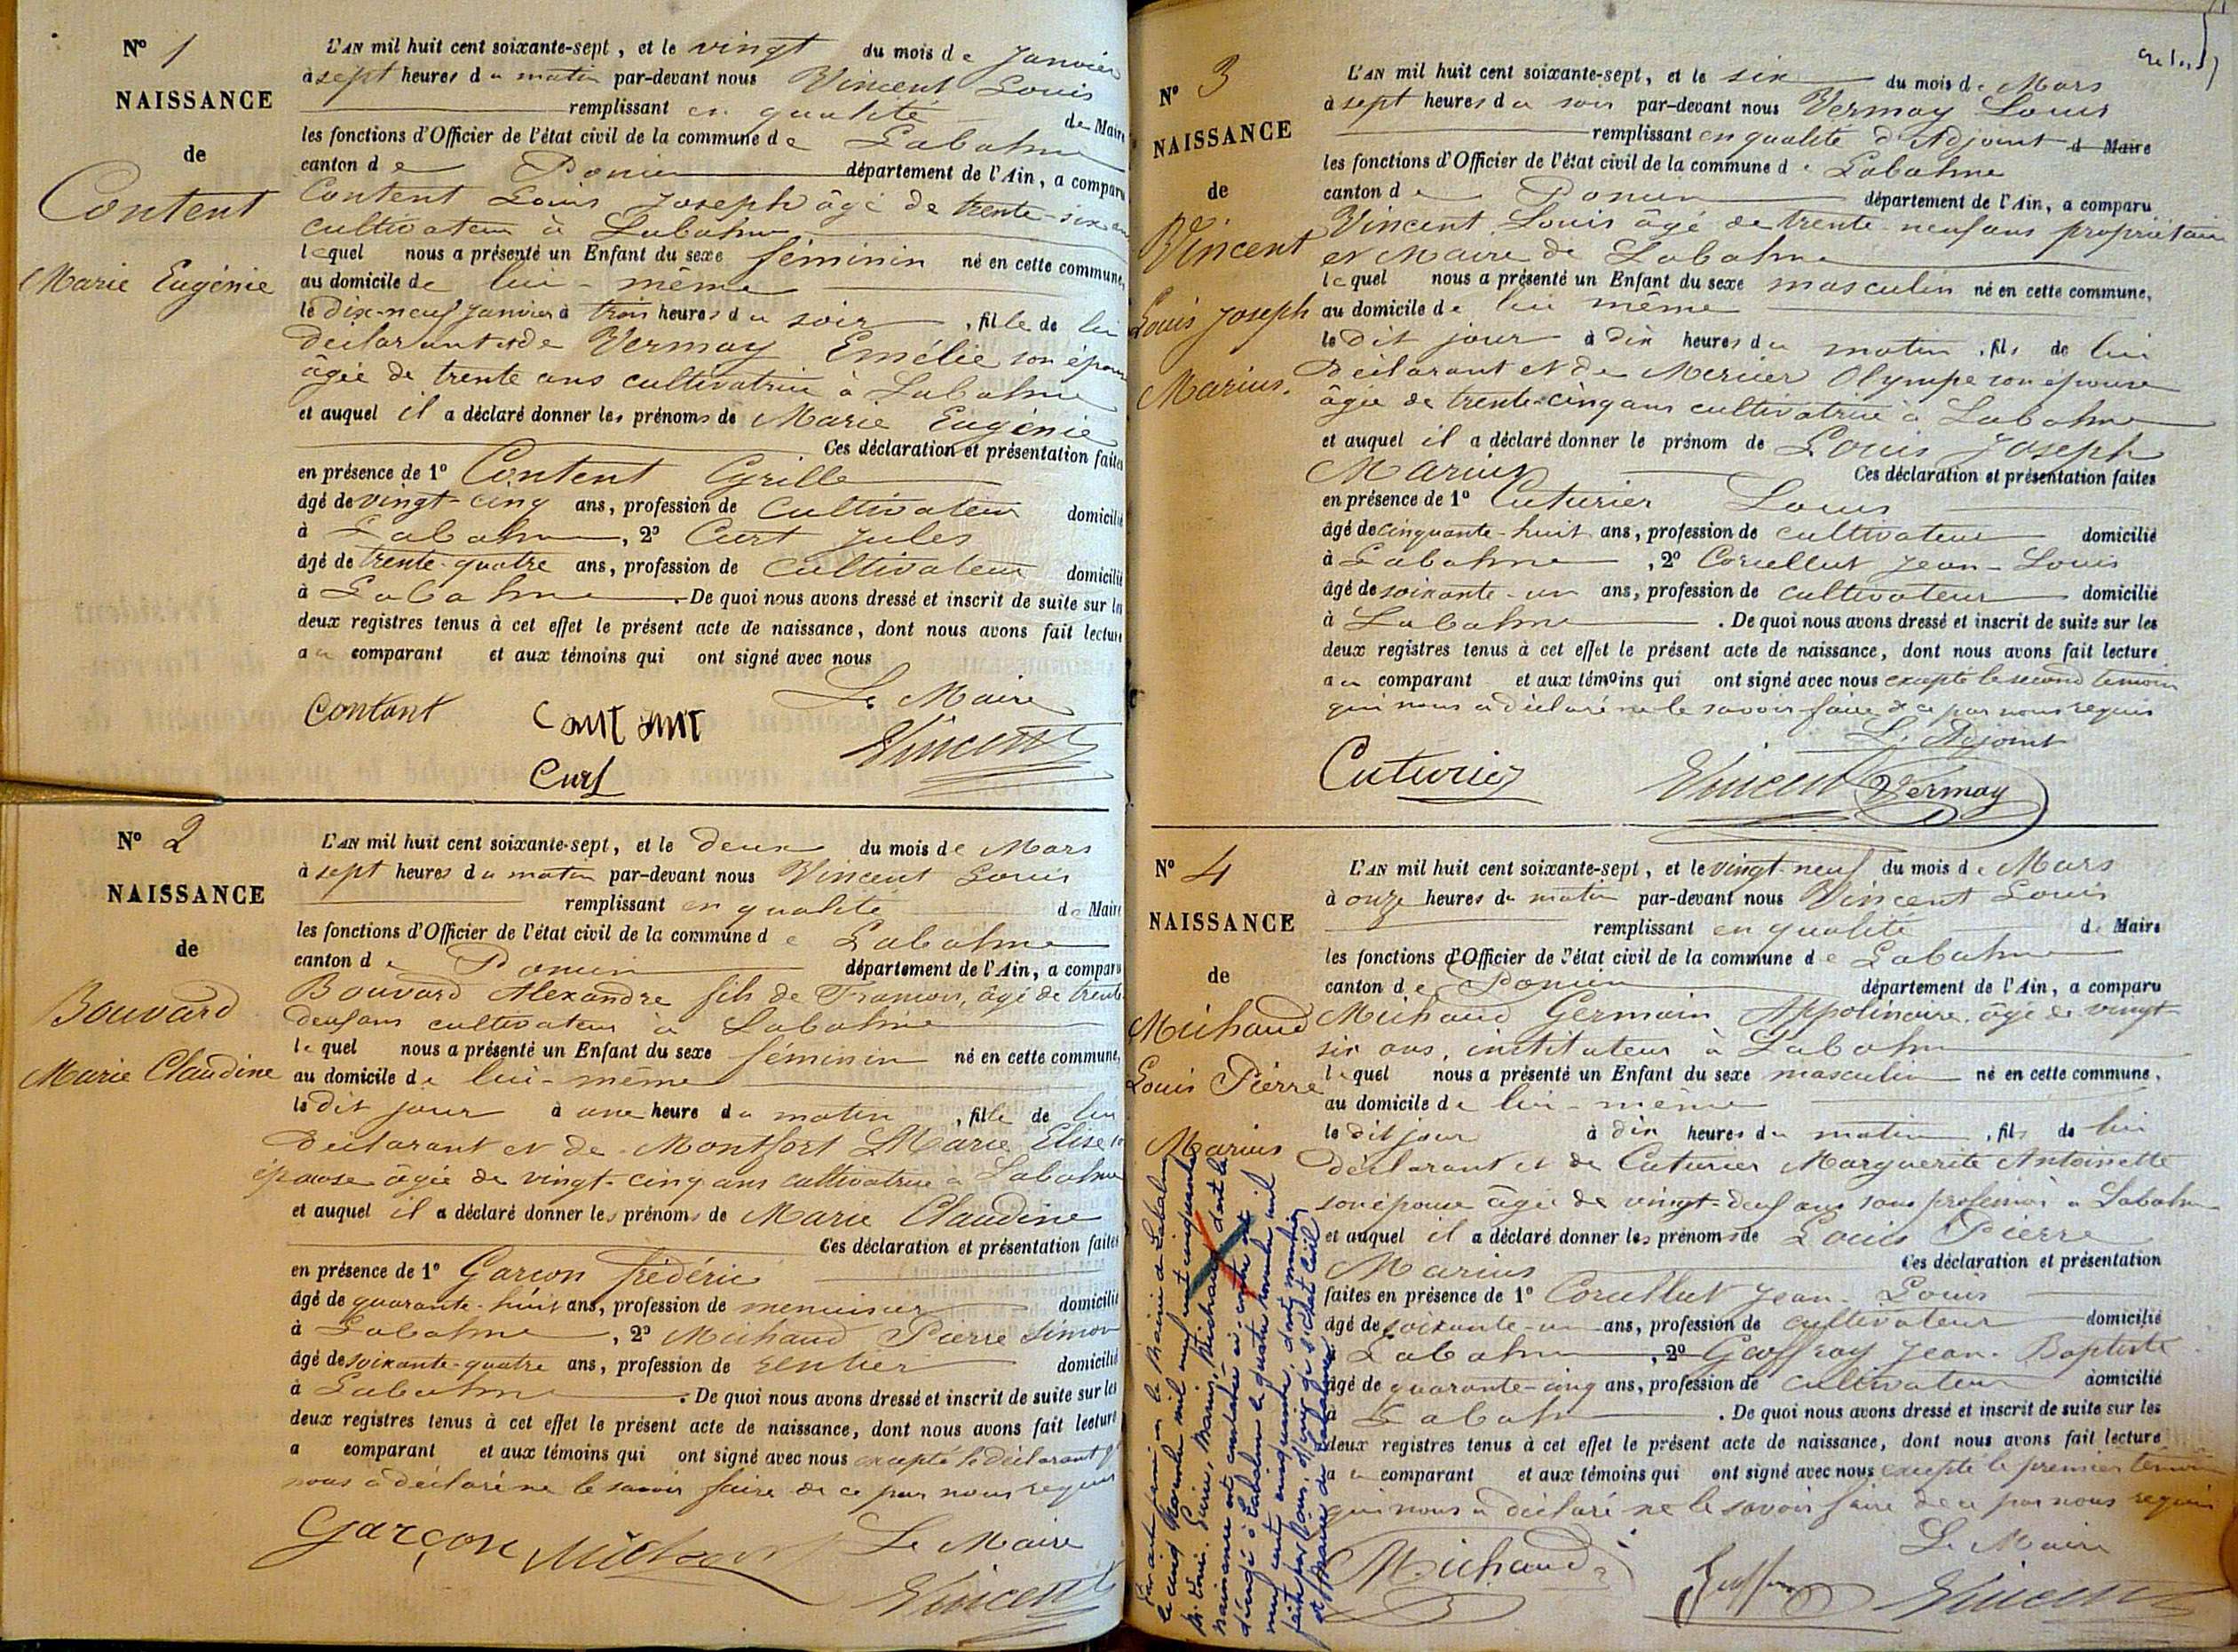 Nº 1
NAISSANCE
de
Content
Marie Eugénie
L'AN mil huit cent soixante-sept, et le vingt du mois de Janvier
à sept heures du matin par-devant nous Vincent Louis
remplissant en qualité de Maire
les fonctions d'Officier de l'état civil de la commune de Labalme
canton de Poncin département de l'Ain, a comparu
Content Louis Joseph âgé de trente-six ans
cultivateur à Labalme
lequel nous a présenté un Enfant du sexe féminin né en cette commune,
au domicile de lui-même
le dix-neuf Janvier à trois heures du soir, fille de lui
déclarant et de Vermay Emélie son épouse
âgée de trente ans cultivatrice à Labalme
et auquel il a déclaré donner les prénoms de Marie Eugénie
Ces déclaration et présentation faites
en présence de 1º Content Grille
âgé de vingt-cinq ans, profession de cultivateur domicilié
à Labalme, 2º Curt Jules
âgé de trente-quatre ans, profession de cultivateur domicilié
à Labalme. De quoi nous avons dressé et inscrit de suite sur les
deux registres tenus à cet effet le présent acte de naissance, dont nous avons fait lecture
au comparant et aux témoins qui ont signé avec nous
Le Maire
Contant
Curt
Vincent
Nº 2
NAISSANCE
de
Bouvard
Marie Claudine
L'AN mil huit cent soixante-sept, et le deux du mois de Mars
à sept heures du matin par-devant nous Vincent Louis
remplissant en qualité de Maire
les fonctions d'Officier de l'état civil de la commune de Labalme
canton de Poncin département de l'Ain, a comparu
Bouvard Alexandre fils de François, âgé de trente
deux ans cultivateur à Labalme
lequel nous a présenté un Enfant du sexe féminin né en cette commune,
au domicile de lui-même
le dit jour à une heure du matin, fille de lui
déclarant et de Montfort Marie Elise
épouse âgée de vingt-cinq ans cultivatrice à Labalme
et auquel il a déclaré donner les prénoms de Marie Claudine
Ces déclaration et présentation faites
en présence de 1º Garçon frédéric
âgé de quarante-huit ans, profession de menuisier domicilié
à Labalme, 2º Michaud Pierre Simon
âgé de soixante-quatre ans, profession de rentier domicilié
à Labalme. De quoi nous avons dressé et inscrit de suite sur les
deux registres tenus à cet effet le présent acte de naissance, dont nous avons fait lecture
a comparant et aux témoins qui ont signé avec nous excepté le déclarant q
nous a déclaré ne le savoir faire de ce par nous requis
Garçon Le Maire
Vincent
Nº 3
NAISSANCE
de
Vincent
Louis Joseph
Marius.
L'AN mil huit cent soixante-sept, et le six du mois de Mars
à sept heures du soir par-devant nous Vermay Louis
remplissant en qualité d'Adjoint d Maire
les fonctions d'Officier de l'état civil de la commune de Labalme
canton de Poncin département de l'Ain, a comparu
Vincent Louis âgé de trente-neuf ans propriétaire
et Maire de Labalme
lequel nous a présenté un Enfant du sexe masculin né en cette commune,
au domicile de lui même
le dit jour à dix heures du matin, fils de lui
déclarant et de Mercier Olympe son épouse
âgée de trente-cinq ans cultivatrice à Labalme
et auquel il a déclaré donner le prénom de Louis Joseph
Marius Ces déclaration et présentation faites
en présence de 1º Cuturier Louis
âgé de cinquante-huit ans, profession de cultivateur domicilié
à Labalme, 2º Corcellut Jean-Louis
âgé de soixante-un ans, profession de cultivateur domicilié
à Labalme. De quoi nous avons dressé et inscrit de suite sur les
deux registres tenus à cet effet le présent acte de naissance, dont nous avons fait lecture
au comparant et aux témoins qui ont signé avec nous excepté le second témoin
qui nous a déclaré ne le savoir faire de ce par nous requis
L'Adjoint
Cuturier Vincent Vermay
Nº 4
NAISSANCE
de
Michaud
Louis Pierre
Marius
L'AN mil huit cent soixante-sept, et le vingt-neuf du mois de Mars
à onze heures du matin par-devant nous Vincent Louis
remplissant en qualité de Maire
les fonctions d'Officier de l'état civil de la commune de Labalme
canton de Poncin département de l'Ain, a comparu
Michaud Germain Appolinaire, âgé de vingt-
six ans, instituteur à Labalme
lequel nous a présenté un Enfant du sexe masculin né en cette commune,
au domicile de lui-même
le dit jour à dix heures du matin, fils de lui
déclarant et de Cuturier Marguerite Antoinette
son épouse âgée de vingt-deux ans sans profession à Labalme
et auquel il a déclaré donner les prénoms de Louis Pierre
Marius Ces déclaration et présentation
faites en présence de 1º Corcellut Jean-Louis
âgé de soixante-un ans, profession de cultivateur domicilié
Labalme, 2º Geoffray Jean-Baptiste
âgé de quarante-cinq ans, profession de cultivateur domicilié
à Labalme. De quoi nous avons dressé et inscrit de suite sur les
deux registres tenus à cet effet le présent acte de naissance, dont nous avons fait lecture
au comparant et aux témoins qui ont signé avec nous excepté le premier témoin
qui nous a déclaré ne le savoir faire de ce par nous requis
Le Maire
Michaud
Vincent
mil neuf cent cinquante
Louis, Pierre, Marius, Michaud dont la
naissance est constatée ci-contre est
décédé à Labalme le quatre novembre mil
neuf cent cinquante, dont mention
faite par Nous, officier de l'état civil
et Maire de Labalme